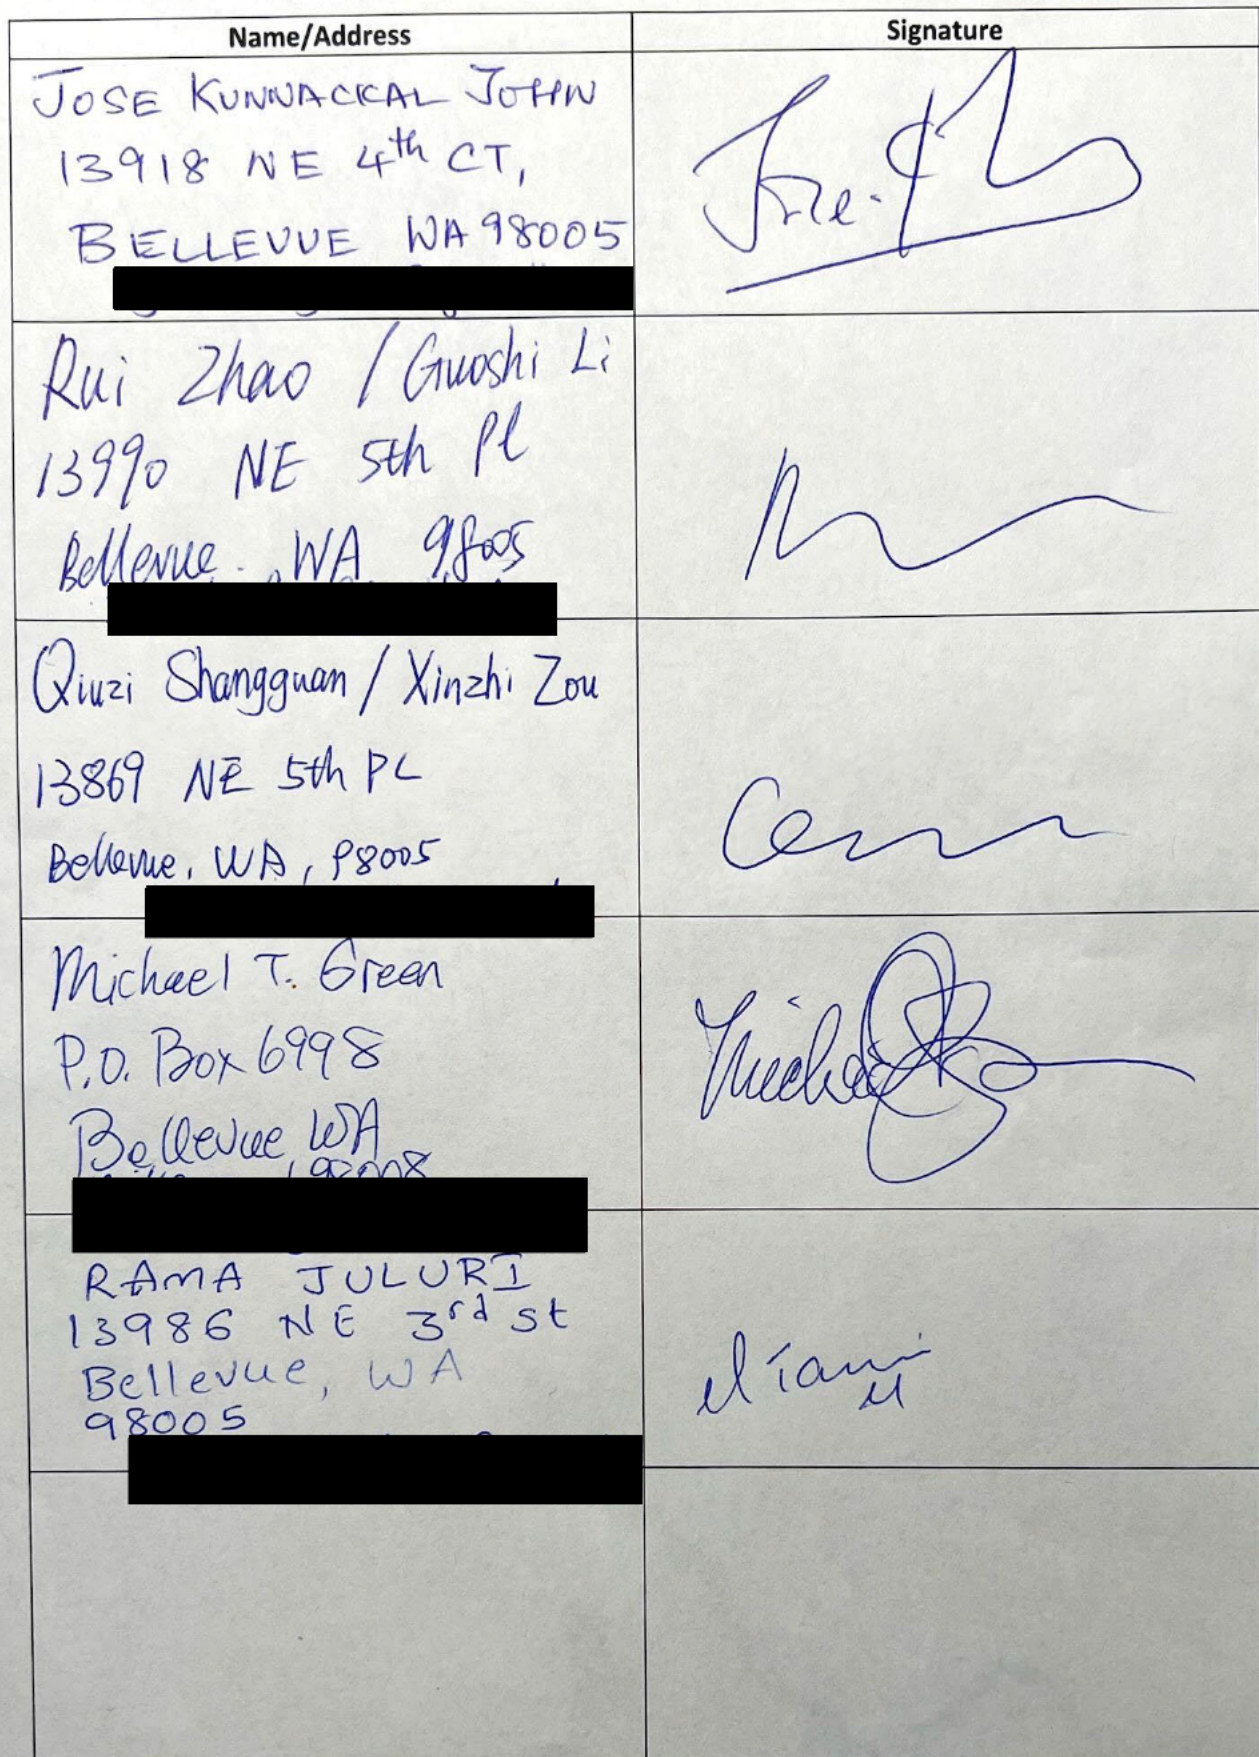 Name/Address
Signature
JOSE KUNNACKAL JOHN
13918 NE 4th CT,
BELLEVUE WA 98005
Jose
Rui Zhao / Guoshi Li
13990 NE 5th Pl
Bellevue, WA 98005
Qiuzi Shangguan / Xinzhi Zou
13869 NE 5th PL
Bellevue, WA, 98005
Michael T. Green
P.O. Box 6998
Bellevue, WA
98008
Michael
RAMA JULURI
13986 NE 3rd st
Bellevue, WA
98005